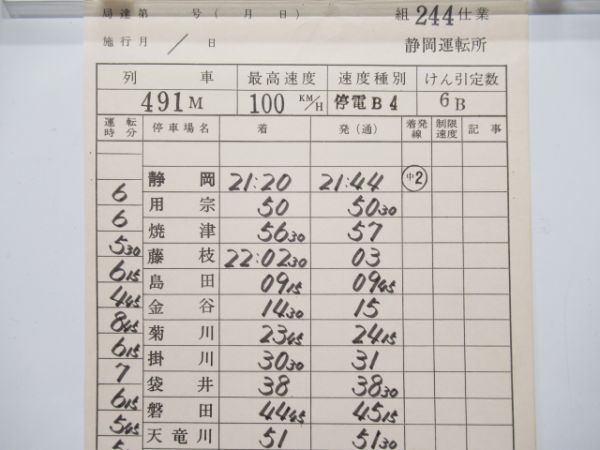 局達第 号(月 日) 組 244 仕業
施行月 / 日 静岡運転所
列車 最高速度 速度種別 けん引定数
491M 100 KM/H 停電B4 6B
運転時分 停車場名 着 発(通) 着発線 制限速度 記事
静岡 21:20 21:44 中2
6
用宗 50 50 30
6
焼津 56 30 57
5 30
藤枝 22:02 30 03
6 15
島田 09 15 09 45
4 45
金谷 14 30 15
8 45
菊川 23 45 24 15
6 15
掛川 30 30 31
7
袋井 38 38 30
6 15
磐田 44 45 45 15
5 45
天竜川 51 51 30